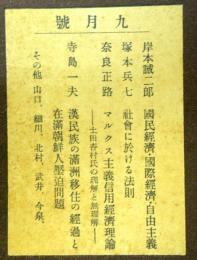 九月號
岸本誠二郎 國民經濟・國際經濟・自由主義
塚本兵七 社會に於ける法則
奈良正路 マルクス主義信用經濟理論
——土田杏村氏の理解と無理解——
寺島一夫 漢民族の滿洲移住の經過と、
在滿朝鮮人壓迫問題
その他 山口、細川、北村、武井、今泉、